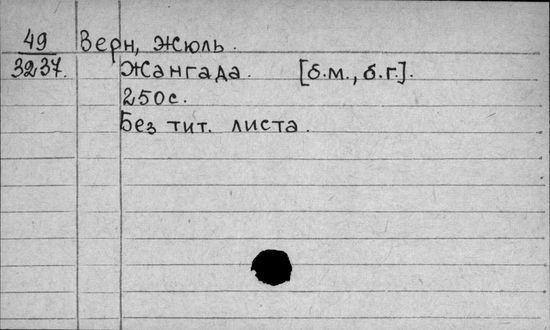 49 Верн, Жюль.
3237. Жангада. [б.м., б.г.].
250с.
Без тит. листа.